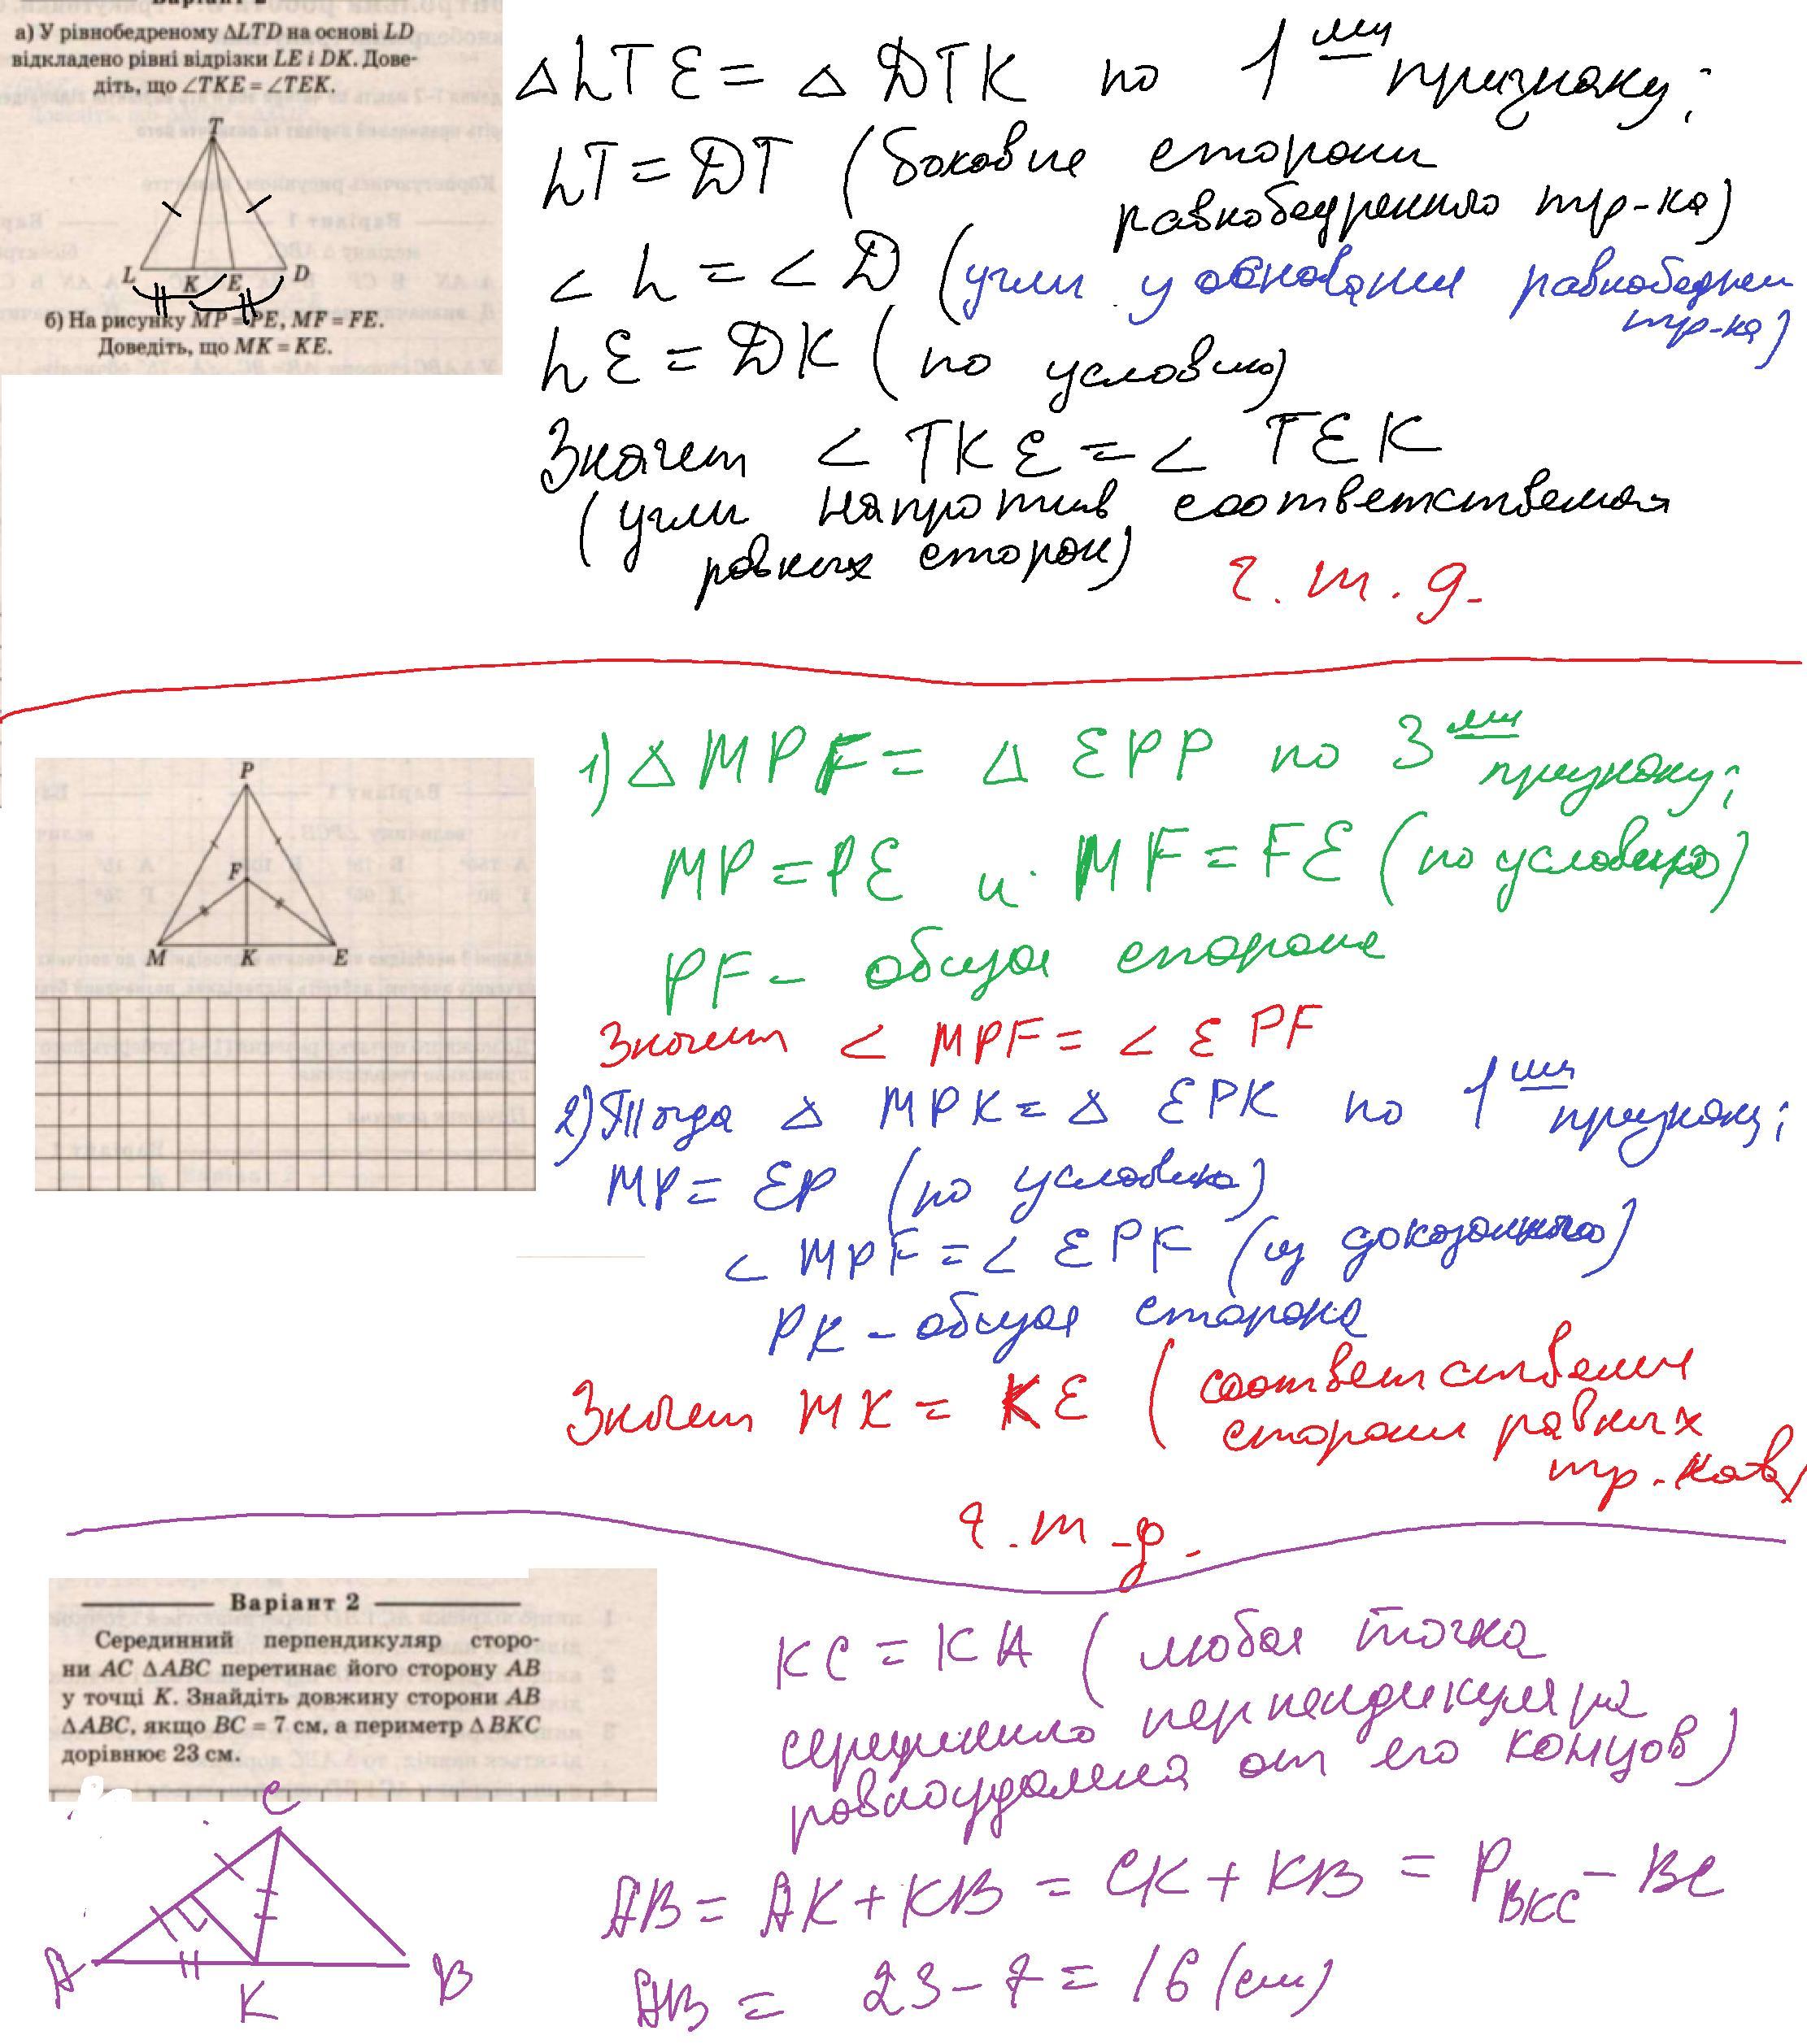 Варіант 2
а) У рівнобедреному ΔLTD на основі LD
відкладено рівні відрізки LE і DK. Дове-
діть, що ∠TKE = ∠TEK.
T
L K E D
б) На рисунку MP = PE, MF = FE.
Доведіть, що MK = KE.
Δ LTE = Δ DTK по 1 ому признаку:
LT = DT (боковые стороны
равнобедренного тр-ка)
∠ L = ∠ D (углы у основания равнобедрен
тр-ка)
LE = DK (по условию)
Значит ∠ TKE = ∠ TEK
(углы напротив соответственно
равных сторон)
ч. т. д.
P
F
M K E
1) Δ MPF = Δ EPP по 3 му признаку:
MP = PE и MF = FE (по условию)
PF - общая сторона
Значит ∠ MPF = ∠ EPF
2) Тогда Δ MPK = Δ EPK по 1 му признаку:
MP = EP (по условию)
∠ MPF = ∠ EPF (из доказанного)
PK - общая сторона
Значит MK = KE (соответственные
стороны равных
тр-ков)
ч. т. д.
Варіант 2
Серединний перпендикуляр сторо-
ни AC ΔABC перетинає його сторону AB
у точці K. Знайдіть довжину сторони AB
ΔABC, якщо BC = 7 см, а периметр ΔBKC
дорівнює 23 см.
C
A K B
KC = KA (любая точка
серединного перпендикуляра
равноудалена от его концов)
AB = AK + KB = CK + KB = P BKC - BC
AB = 23 - 7 = 16 (см)